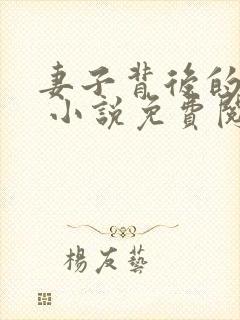 妻子背後的
小說免費閱
楊友藝